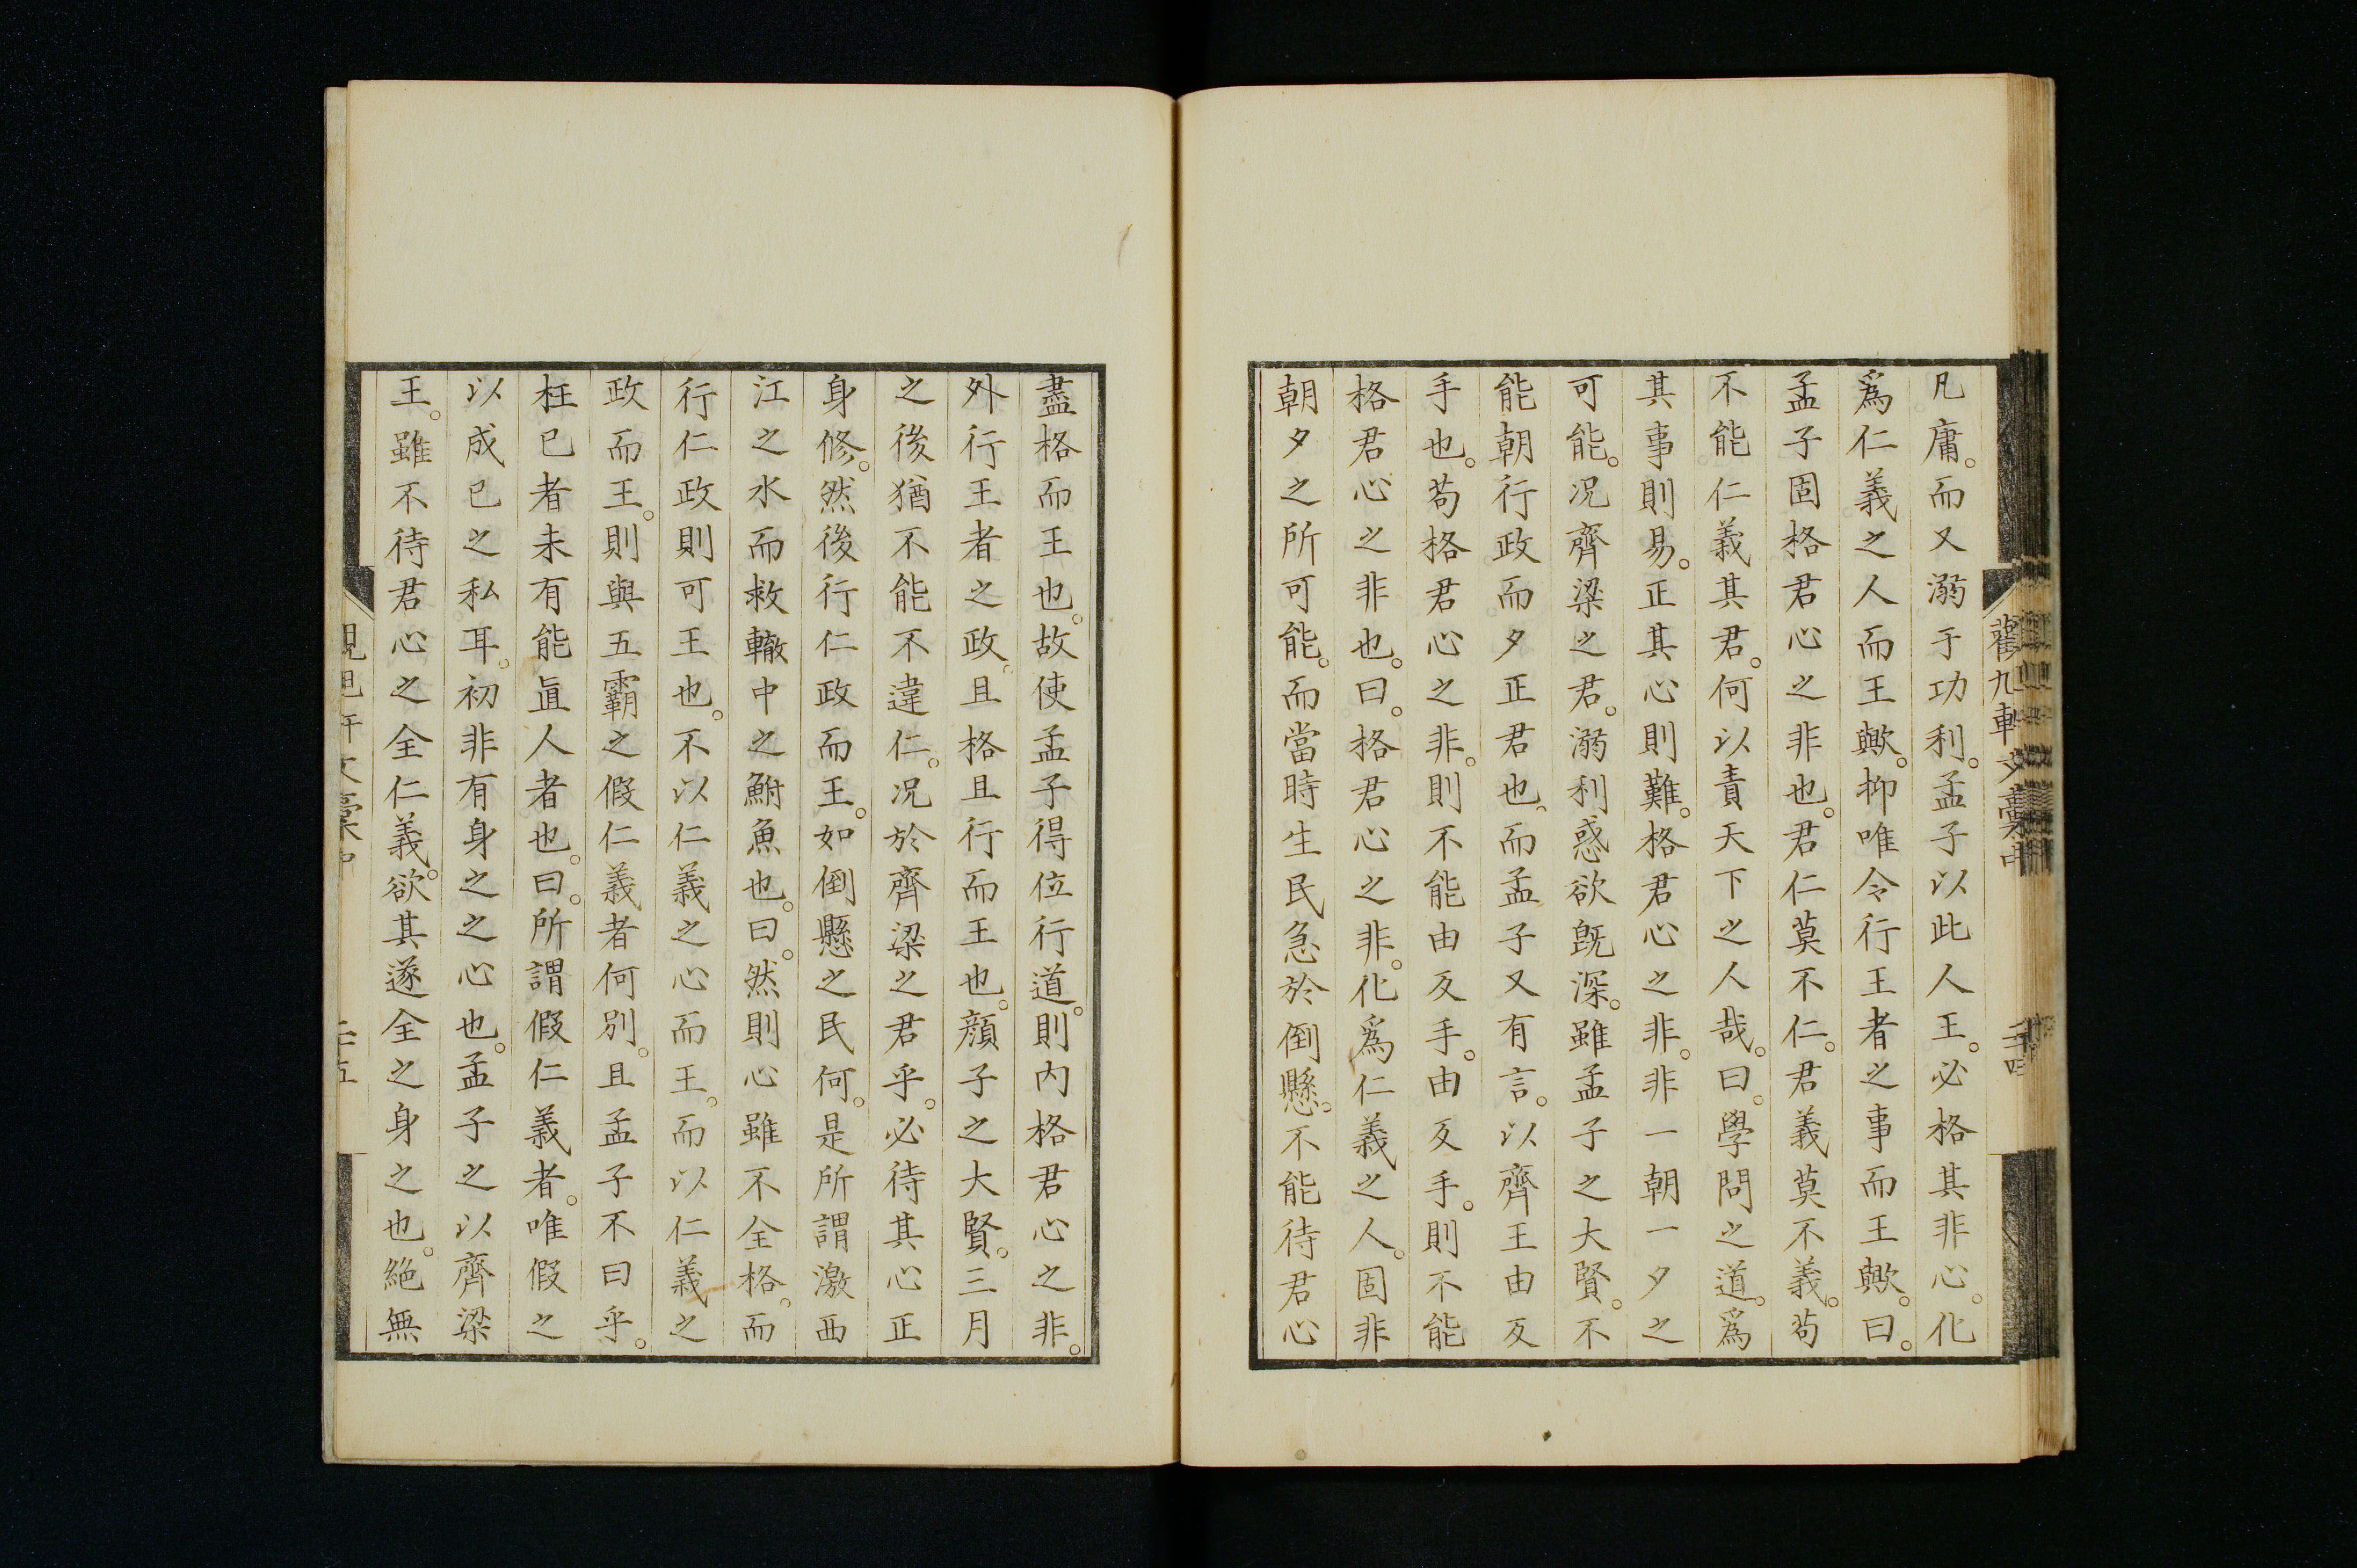 凡庸。而又溺于功利。孟子以此人王。必格其非心。化
爲仁義之人而王歟。抑唯令行王者之事而王歟。曰。
孟子固格君心之非也。君仁莫不仁。君義莫不義。苟
不能仁義其君。何以責天下之人哉。曰。學問之道。爲
其事則易。正其心則難。格君心之非。非一朝一夕之
可能。況齊梁之君。溺利惑欲既深。雖孟子之大賢。不
能朝行政而夕正君也。而孟子又有言。以齊王由反
手也。苟格君心之非。則不能由反手。由反手。則不能
格君心之非也。曰。格君心之非。化爲仁義之人。固非
朝夕之所可能。而當時生民急於倒懸。不能待君心
盡格而王也。故使孟子得位行道。則内格君心之非。
外行王者之政。且格且行而王也。顏子之大賢。三月
之後猶不能不違仁。況於齊梁之君乎。必待其心正
身修。然後行仁政而王。如倒懸之民何。是所謂激西
江之水而救轍中之鮒魚也。曰。然則心雖不全格。而
行仁政則可王也。不以仁義之心而王。而以仁義之
政而王。則與五霸之假仁義者何別。且孟子不曰乎。
枉已者未有能直人者也。曰。所謂假仁義者。唯假之
以成已之私耳。初非有身之之心也。孟子之以齊梁
王。雖不待君心之全仁義。欲其遂全之身之也。絶無